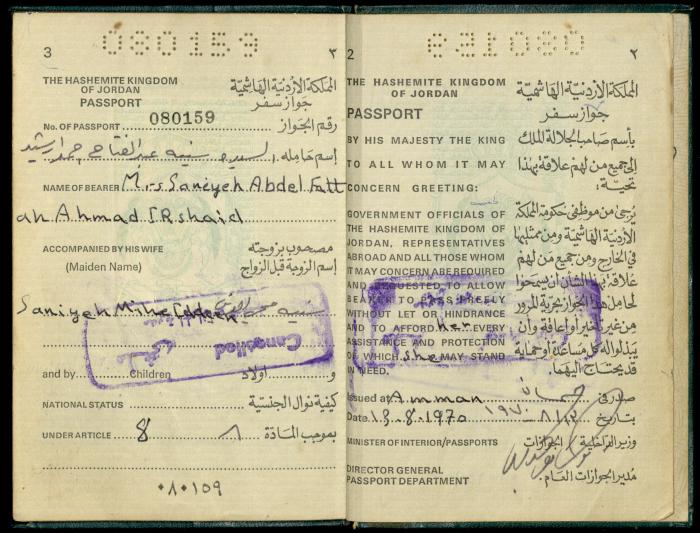 3
080159
٣
THE HASHEMITE KINGDOM
OF JORDAN
PASSPORT
المملكة الأردنية الهاشمية
جواز سفر
No. OF PASSPORT 080159 رقم الجواز
اسم حامله: السيدة سنيه عبد الفتاح احمد ارشيد
NAME OF BEARER Mrs Saniyeh Abdel Fatt
ah Ahmad IRshaid
ACCOMPANIED BY HIS WIFE مصحوب بزوجته
(Maiden Name) إسم الزوجة قبل الزواج
Saniyeh سنيه
Cancelled
ملغى
and by Children و اولاد
NATIONAL STATUS كيفية نوال الجنسية
UNDER ARTICLE 8 ٨ بموجب المادة
٠٨٠١٥٩
2
080159
٢
THE HASHEMITE KINGDOM
OF JORDAN
PASSPORT
BY HIS MAJESTY THE KING
TO ALL WHOM IT MAY
CONCERN GREETING:
GOVERNMENT OFFICIALS OF
THE HASHEMITE KINGDOM OF
JORDAN, REPRESENTATIVES
ABROAD AND ALL THOSE WHOM
IT MAY CONCERN ARE REQUIRED
AND REQUESTED TO ALLOW
BEARER PASS FREELY
WITHOUT LET OR HINDRANCE
AND TO AFFORD her EVERY
ASSISTANCE AND PROTECTION
OF WHICH she MAY STAND
IN NEED.
المملكة الأردنية الهاشمية
جواز سفر
بأسم صاحب الجلالة الملك
إلى جميع من لهم علاقة بهذا
تحية:
يرجى من موظفي حكومة المملكة
الأردنية الهاشمية ومن ممثليها
في الخارج ومن جميع من لهم
علاقة بهذا الشأن ان يسمحوا
لحامل هذا الجواز بحرية المرور
من غير تأخير أو اعاقة وأن
يبذلوا له كل مساعدة أو حماية
قد يحتاج اليهما.
Issued at Amman عمان صدر في
Date 13.8.1970 ١٣/٨/١٩٧٠ بتاريخ
MINISTER OF INTERIOR/PASSPORTS وزير الداخلية/الجوازات
DIRECTOR GENERAL
PASSPORT DEPARTMENT
مدير الجوازات العام